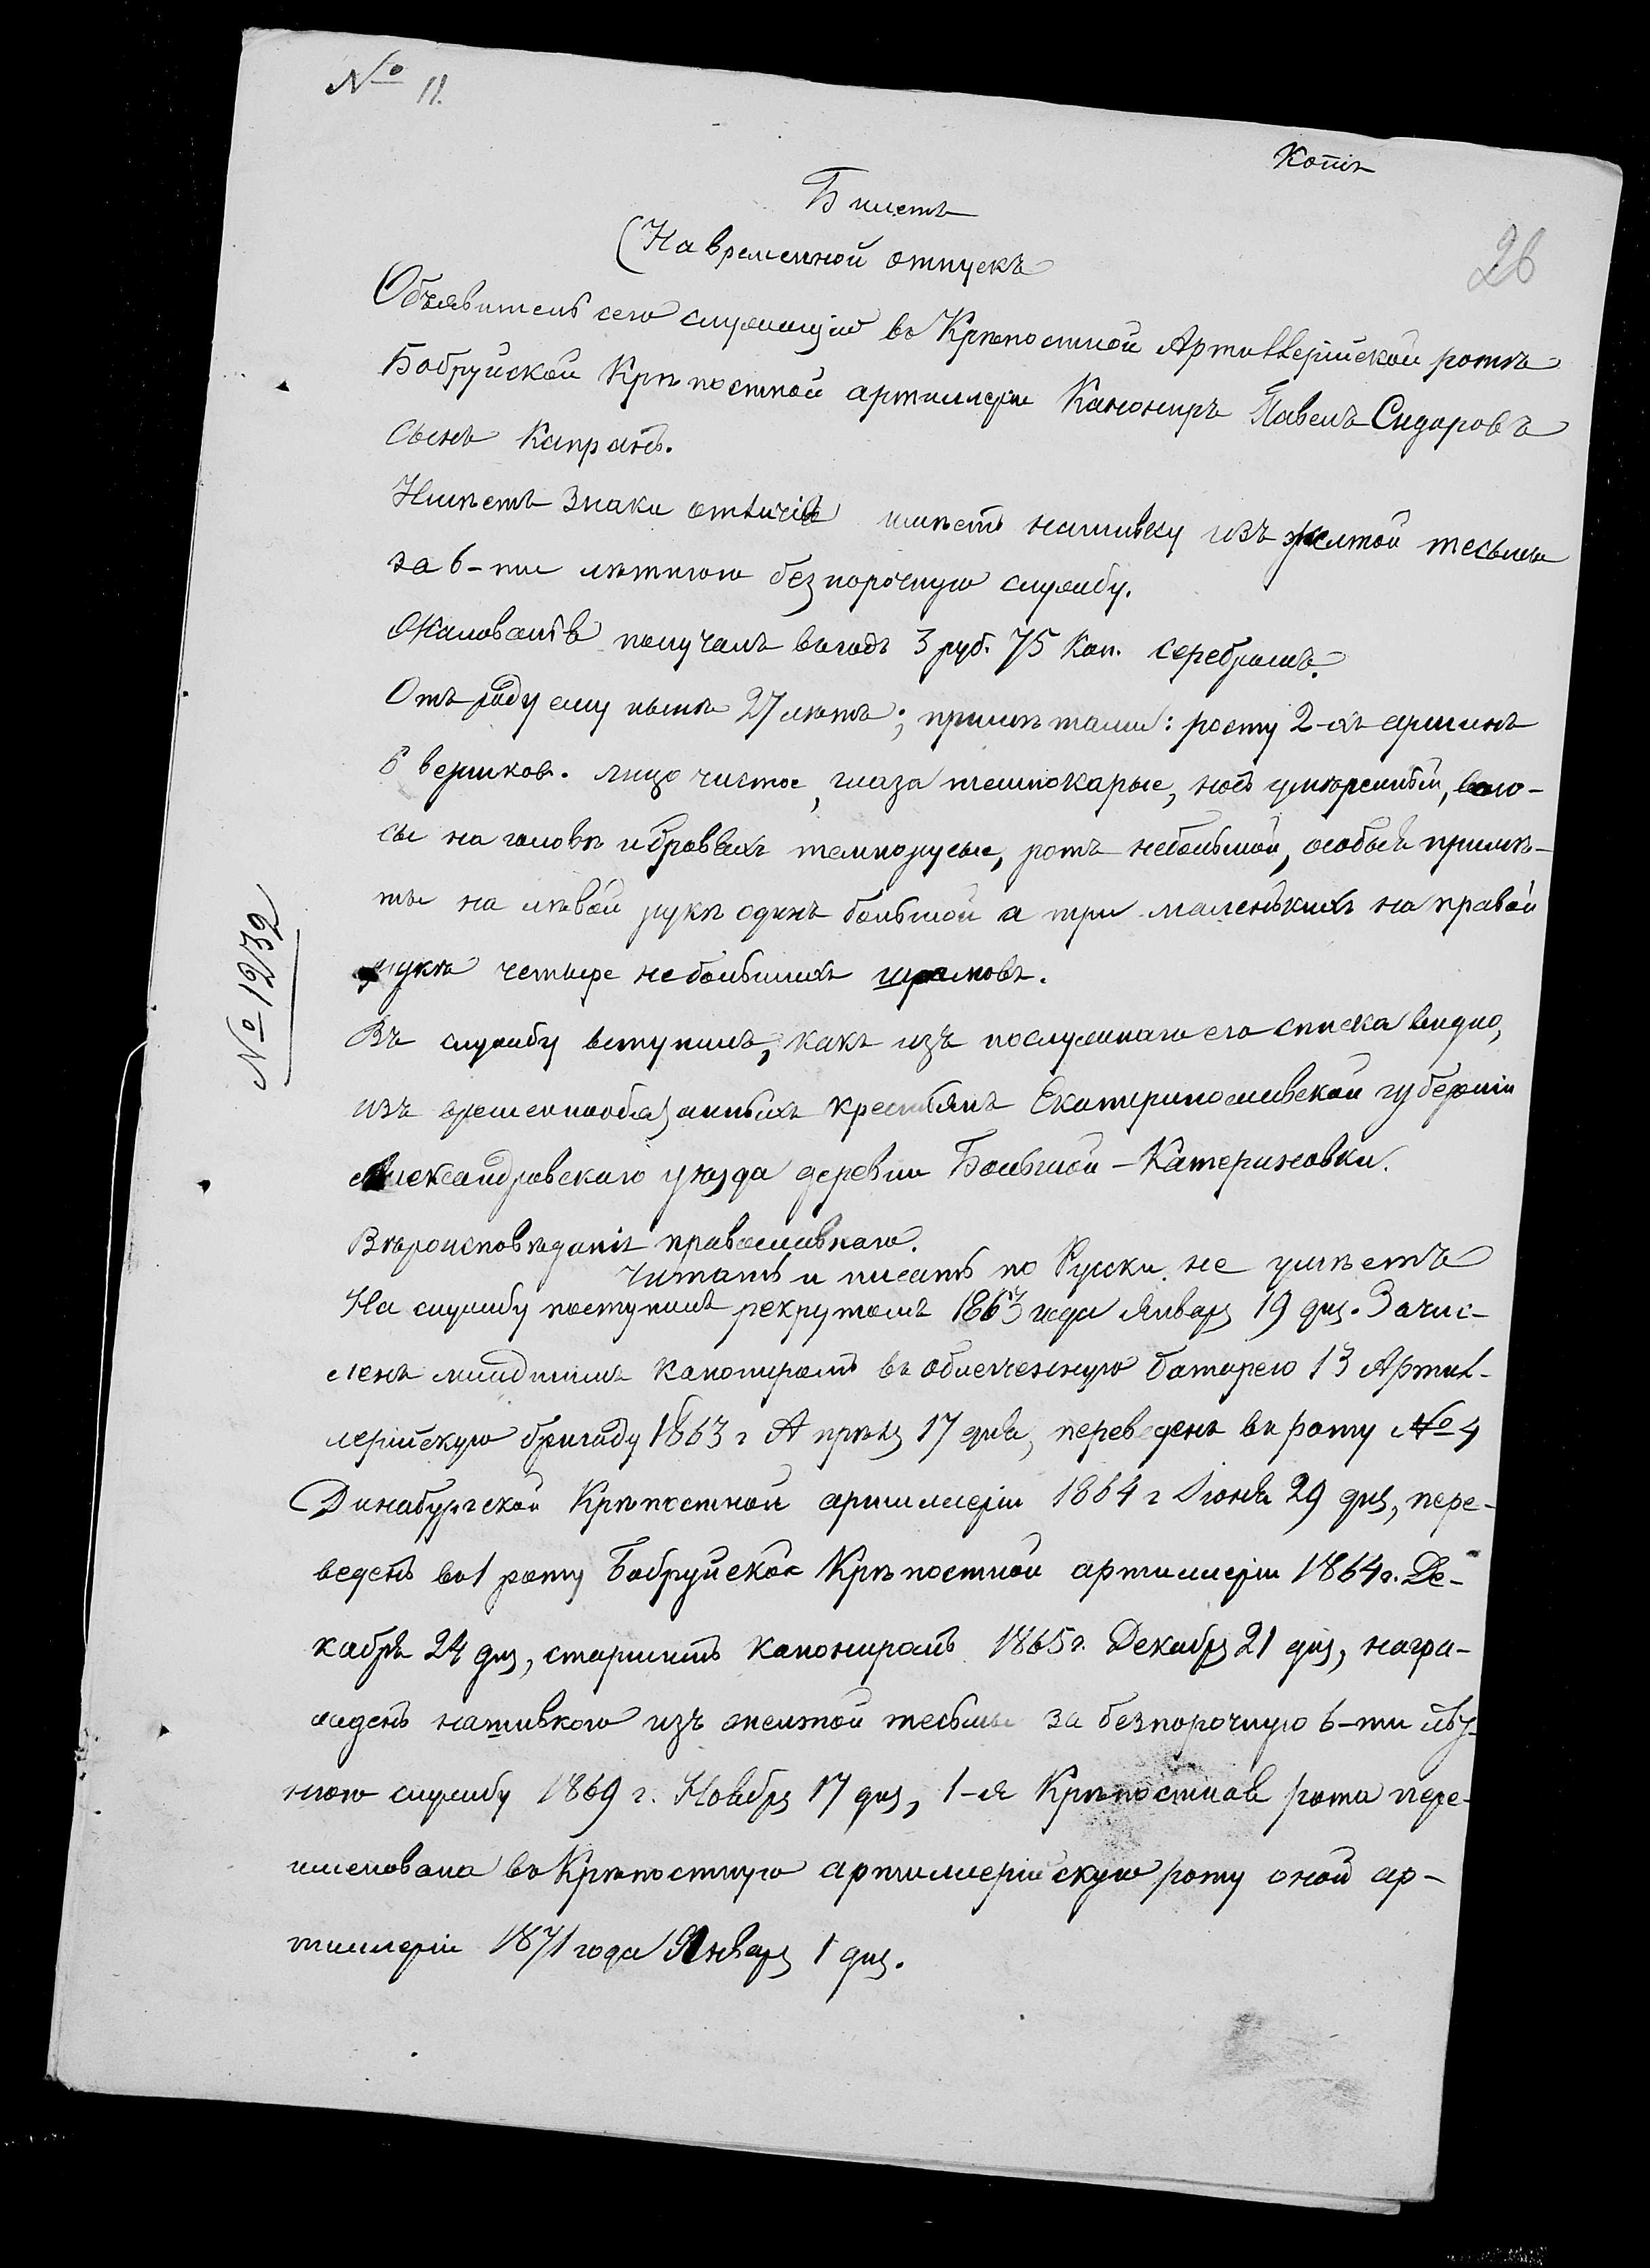 № 11.
Копія
26
Билетъ
(На временной отпускъ
Объявитель сего служащій въ Крѣпостной Артиллерійской ротѣ
Бобруйской Крѣпостной артиллеріи Канониръ Павелъ Сидоровъ
сынъ Капранъ.
Имѣетъ знаки отличія имѣетъ нашивку изъ желтой тесьмы
за 6-ти лѣтнюю безпорочную службу.
Жалованья получалъ въ годъ 3 руб. 75 коп. серебромъ.
Отъ роду ему нынѣ 27 лѣтъ; примѣтами: росту 2-хъ аршинъ
6 вершков. лицо чистое, глаза темнокарые, носъ умѣренный, воло-
сы на головѣ и бровяхъ темнорусые, ротъ небольшой, особыя примѣ-
ты на лѣвой рукѣ одинъ большой а три маленькихъ на правой
рукѣ четыре небольшихъ шрамовъ.
№ 1232
Въ службу вступилъ, какъ изъ послужнаго его списка видно,
изъ временнообязанныхъ крестьянъ Екатеринославской губерніи
Александровскаго уѣзда деревни Большой-Катериновки.
Вѣроисповѣданія православнаго.
Читать и писать по Русски не умѣетъ
На службу поступилъ рекрутомъ 1863 года Января 19 дня. Зачис-
ленъ младшимъ канониромъ въ облегченную батарею 13 Артил-
лерійскую бригаду 1863 г Апрѣля 17 дня, переведенъ въ роту № 4
Динабургской Крѣпостной артиллеріи 1864 г Іюня 29 дня, пере-
веденъ во 1 роту Бобруйской Крѣпостной артиллеріи 1864 г. Де-
кабря 24 дня, старшимъ канониромъ 1865 г. Декабря 21 дня, награ-
жденъ нашивкою изъ желтой тесьмы за безпорочную 6-ти лѣт-
нюю службу 1869 г. Ноября 17 дня, 1-я Крѣпостная рота пере-
именована въ Крѣпостную артиллерійскую роту оной ар-
тиллеріи 1871 года Января 1 дня.